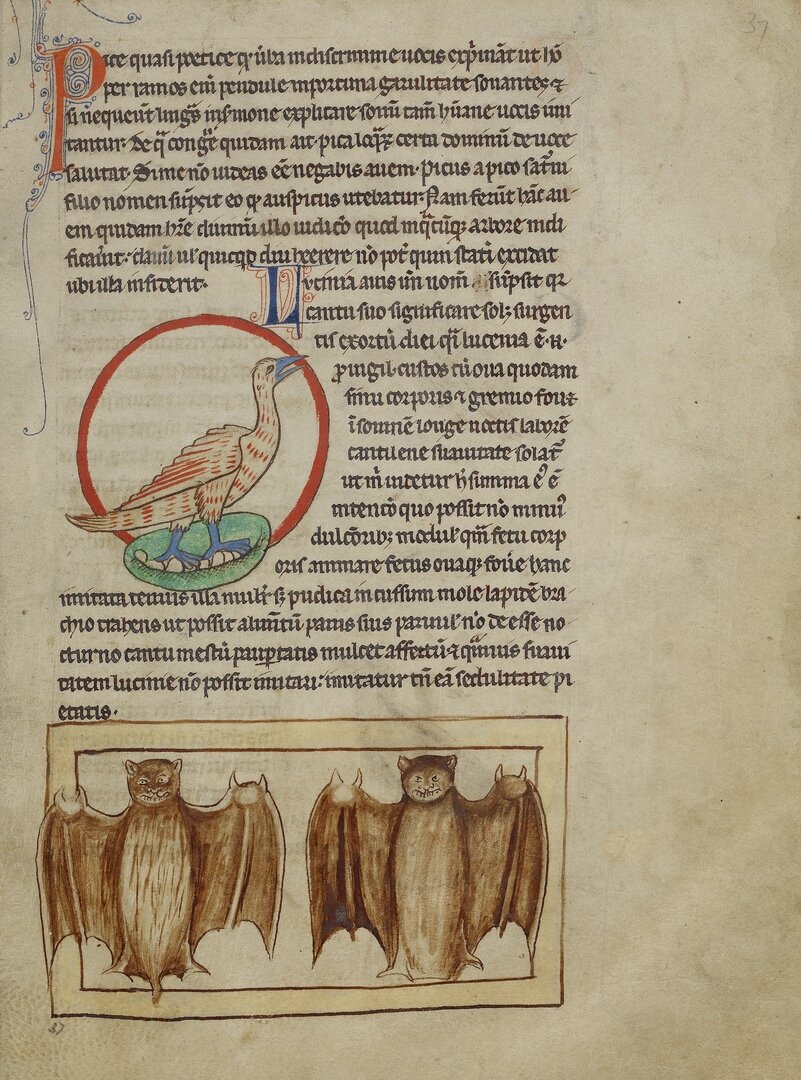 37
Pice quasi poetice qͥ ūba in discrimine uocis exp̄mant ut hō
per ramos eni pendule inportuna garulitate sonantes ⁊
si nequeunt lingͣs in sermone explicare sonū tam̄ hūane uocis imi
tantur. De qͣ congͤe quidam ait. pica loqͣx certa dominū te uoce
salutat. Si me nō uideas eē negabis auem. Picus a pico satͬni
filio nomen sūpsit eo qͥ auspicus utebatur. Nam ferūt hāc au
em quidam hr̄e diuinū illo iudicō quod in qͣcūqꝫ arbore nidi
ficauit. clauū ul' quicqͥd aliud herere nō potͭ quin statī excidat
ubi illa insiderit.
Lucinia auis īn nom̄ sūpsit qͥ
cantu suo significare solꝫ surgen
tis exortū diei qͣi lucenia ē. ē. ⁊.
ꝑuigil custos cū oua quodam
sinu corporis ⁊ gremio fouet
īsomnē longe noctis laborē
cantilene suauitate solatͬ
ut m̄ uidetur h̄ summa eͥ ē
intencō quo possit nō minuͥ
dulcōribꝫ modul' qͣm fetu corp
oris animare fetus ouaqꝫ foue hanc
imitata tenuis illa mulier sꝫ pudica incussum mole lapidē bra
chio trahens ut possit alimtū panis suis paruul' nō deesse no
cturno cantu mestū paupertatis mulcet affectū ⁊ qͣmuis suaui
tatem lucinie nō possit imitari. imitatur tn̄ eā sedulitate pi
etatis.
37